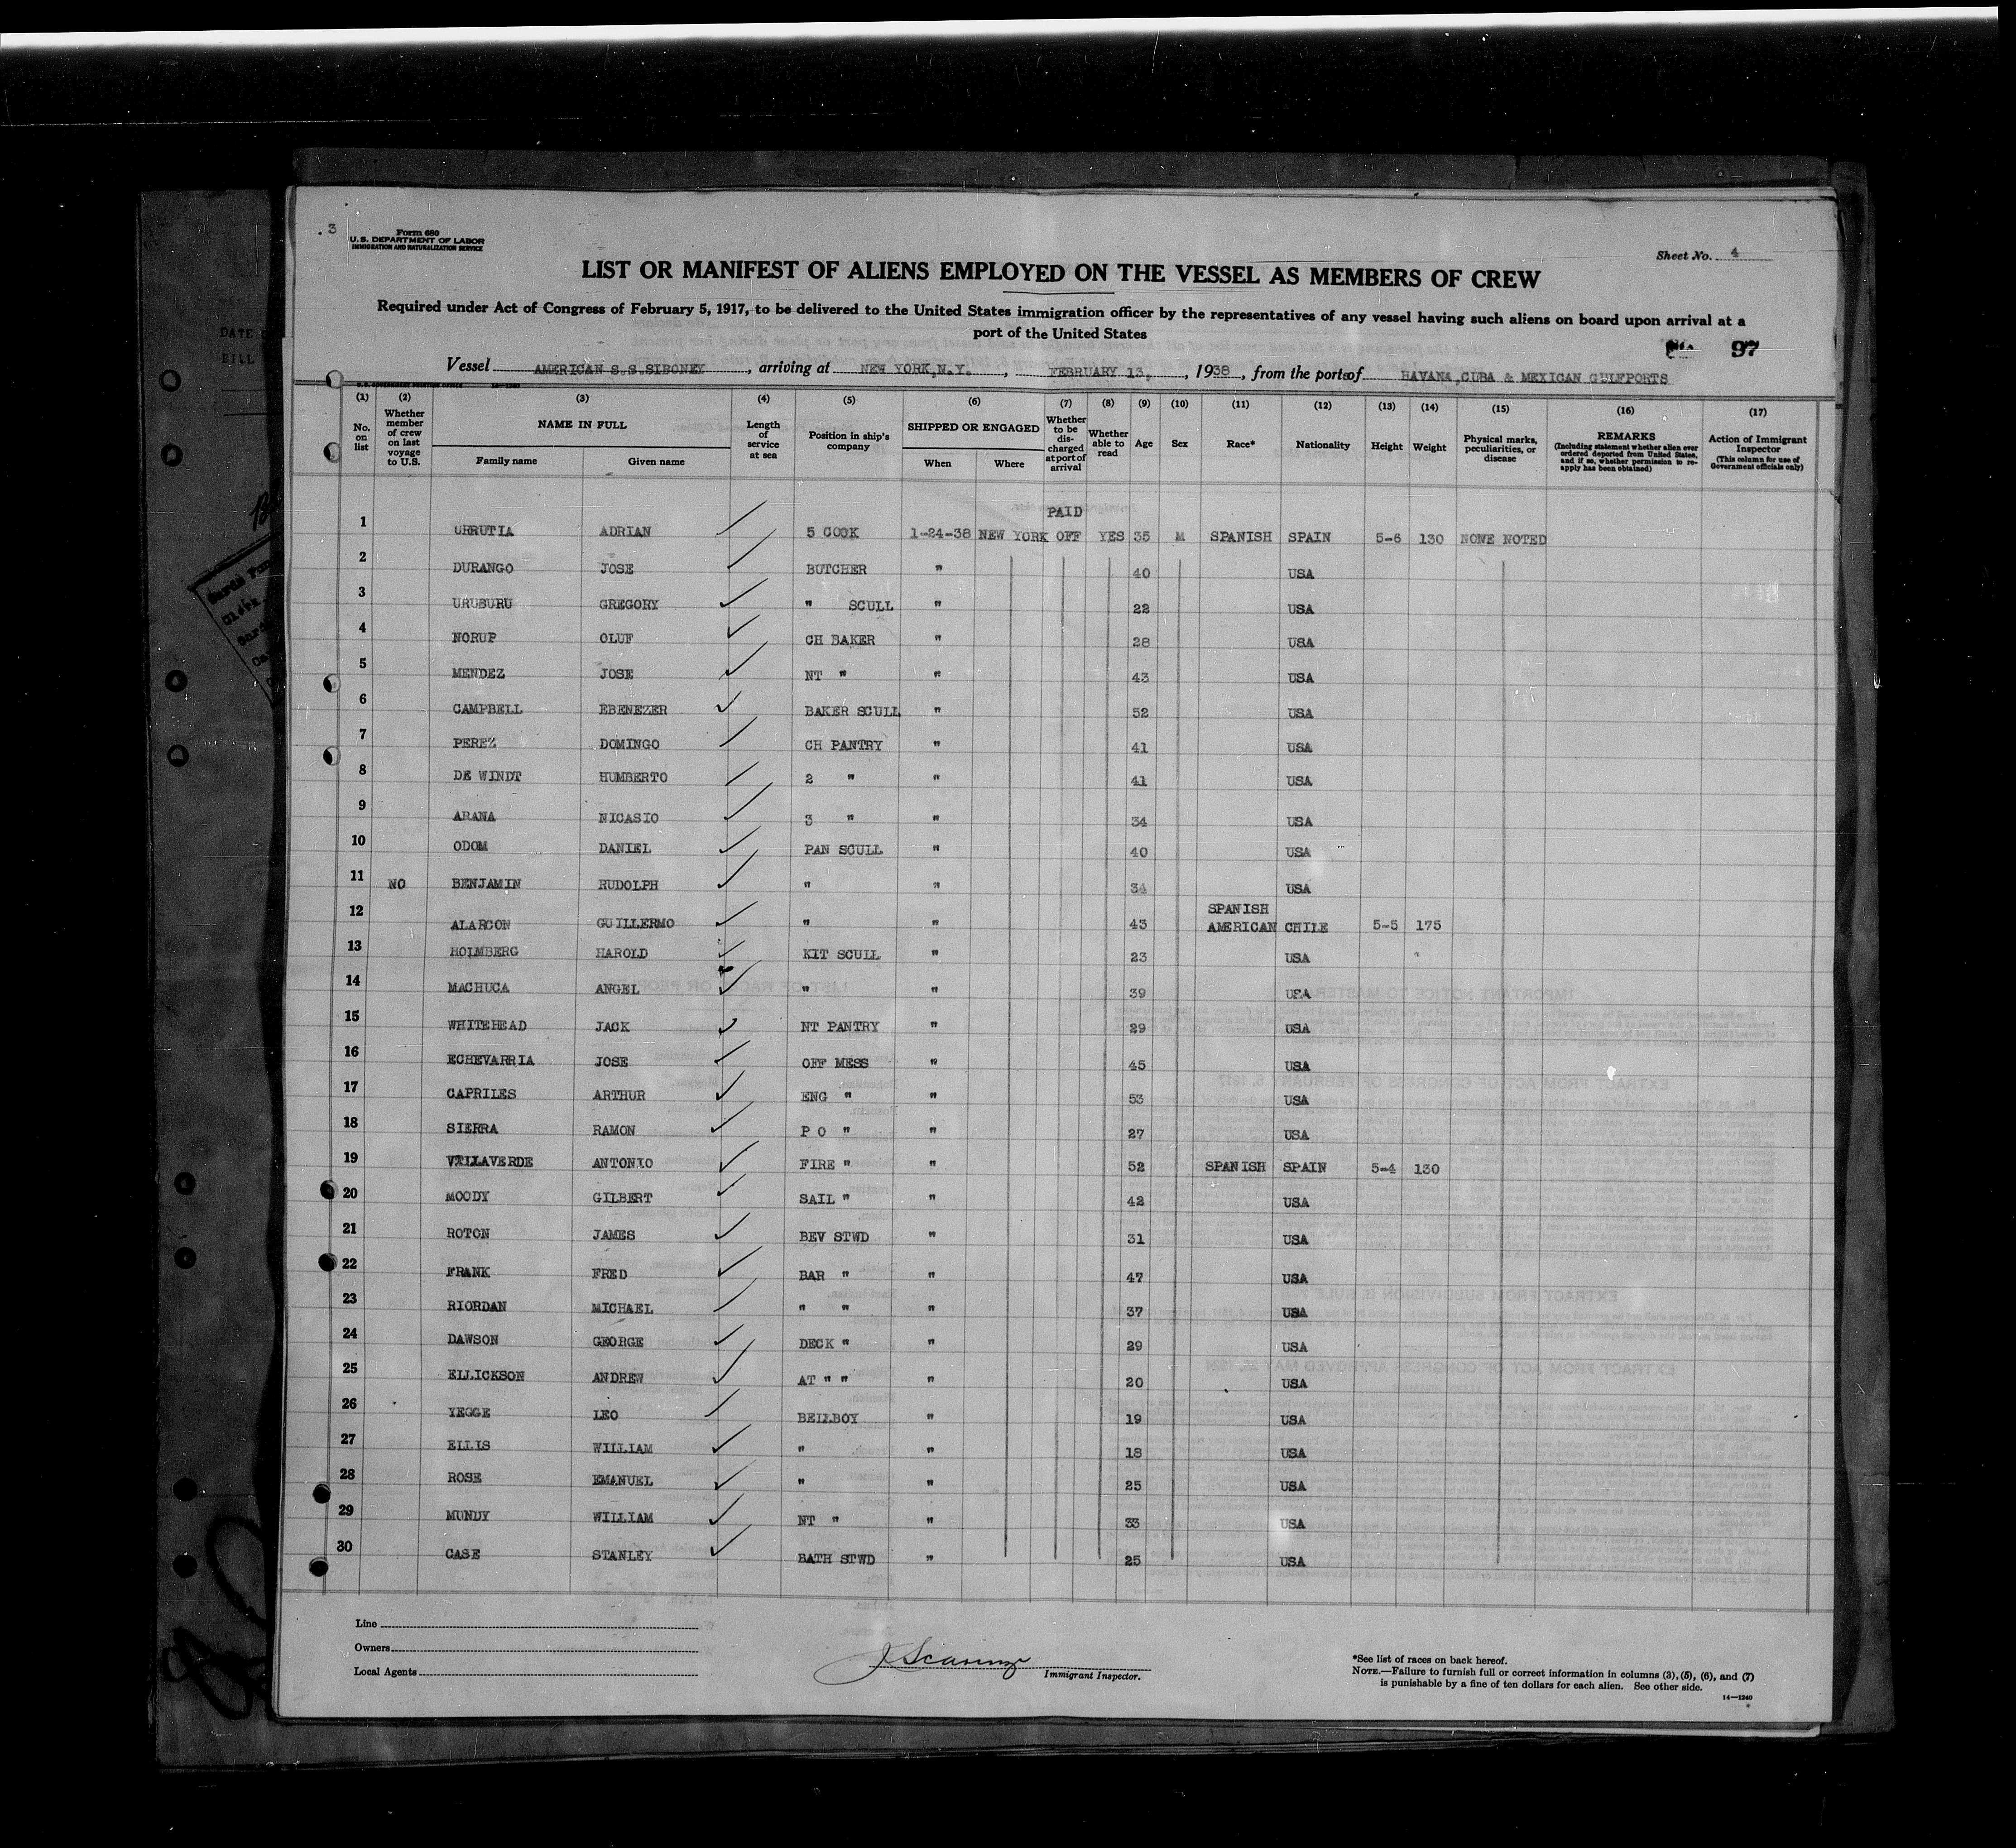 3
Form 680
U. S. DEPARTMENT OF LABOR
IMMIGRATION AND NATURALIZATION SERVICE
Sheet No. 4
LIST OR MANIFEST OF ALIENS EMPLOYED ON THE VESSEL AS MEMBERS OF CREW
Required under Act of Congress of February 5, 1917, to be delivered to the United States immigration officer by the representatives of any vessel having such aliens on board upon arrival at a
port of the United States
97
Vessel AMERICAN S.S.SIBONEY, arriving at NEW YORK,N.Y., FEBRUARY 13, 1938, from the ports of HAVANA,CUBA & MEXICAN GULFPORTS
U.S. GOVERNMENT PRINTING OFFICE 14-1240
(1) No. on list (2) Whether member of crew on last voyage to U.S. (3) NAME IN FULL Family name Given name (4) Length of service at sea (5) Position in ship's company (6) SHIPPED OR ENGAGED When Where (7) Whether to be discharged at port of arrival (8) Whether able to read (9) Age (10) Sex (11) Race* (12) Nationality (13) Height (14) Weight (15) Physical marks, peculiarities, or disease (16) REMARKS (Including statement whether alien ever ordered deported from United States, and if so, whether permission to re-apply has been obtained) (17) Action of Immigrant Inspector (This column for use of Government officials only)
1 URRUTIA ADRIAN 5 COOK 1-24-38 NEW YORK PAID OFF YES 35 M SPANISH SPAIN 5-6 130 NONE NOTED
2 DURANGO JOSE BUTCHER " 40 USA
3 URUBURU GREGORY " SCULL " 22 USA
4 NORUP OLUF CH BAKER " 28 USA
5 MENDEZ JOSE NT " " 43 USA
6 CAMPBELL EBENEZER BAKER SCULL " 52 USA
7 PEREZ DOMINGO CH PANTRY " 41 USA
8 DE WINDT HUMBERTO 2 " " 41 USA
9 ARANA NICASIO 3 " " 34 USA
10 ODOM DANIEL PAN SCULL " 40 USA
11 NO BENJAMIN RUDOLPH " " 34 USA
12 ALARCON GUILLERMO " " 43 SPANISH AMERICAN CHILE 5-5 175
13 HOLMBERG HAROLD KIT SCULL " 23 USA
14 MACHUCA ANGEL " " 39 USA
15 WHITEHEAD JACK NT PANTRY " 29 USA
16 ECHEVARRIA JOSE OFF MESS " 45 USA
17 CAPRILES ARTHUR ENG " " 53 USA
18 SIERRA RAMON P O " " 27 USA
19 VILLAVERDE ANTONIO FIRE " " 52 SPANISH SPAIN 5-4 130
20 MOODY GILBERT SAIL " " 42 USA
21 ROTON JAMES BEV STWD " 31 USA
22 FRANK FRED BAR " " 47 USA
23 RIORDAN MICHAEL " " " 37 USA
24 DAWSON GEORGE DECK " " 29 USA
25 ELLICKSON ANDREW AT " " " 20 USA
26 YEGGE LEO BELLBOY " 19 USA
27 ELLIS WILLIAM " " 18 USA
28 ROSE EMANUEL " " 25 USA
29 MUNDY WILLIAM NT " " 33 USA
30 CASE STANLEY BATH STWD " 25 USA
Line
Owners
Local Agents
Immigrant Inspector.
*See list of races on back hereof.
NOTE.—Failure to furnish full or correct information in columns (3), (5), (6), and (7)
is punishable by a fine of ten dollars for each alien. See other side.
14—1240